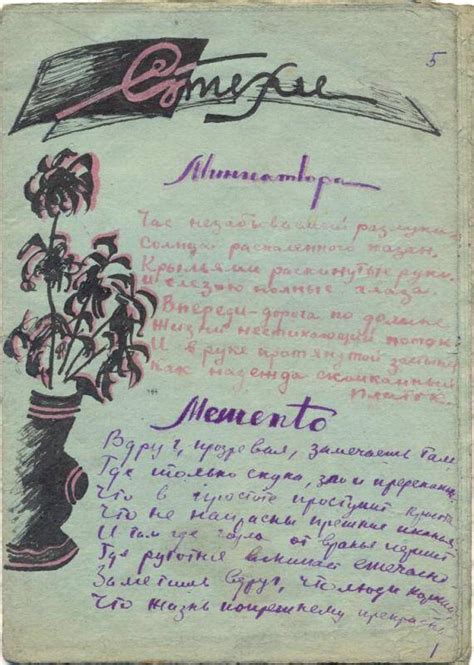 5
Стихи
Миниатюра
Час незабываемый разлуки
Солнца раскаленного казан,
Крыльями раскинутые руки
И слезою полные глаза
Впереди - дорога по долине
Жизни нестихающий поток
И в руке протянутой застыл
Как надежда скомканный
платок.
Memento
Вдруг, прозревая, замечаешь там
Где только скука, зло и
Что в простоте проступит красота
Что не напрасны прежние
И там где от вранья
Где рутотня ежечасно
Заметишь вдруг, что люди
Что жизнь по прежнему прекрасна
1